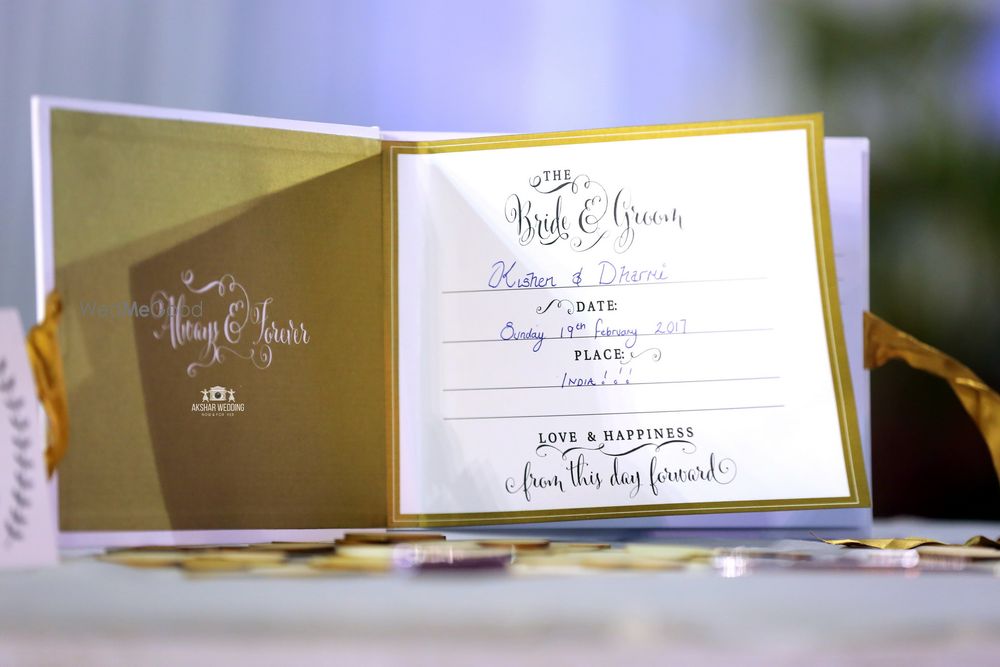 WedMeGood
Always & Forever
AKSHAR WEDDING
NOW & FOR VER
THE
Bride & Groom
Kishen & Dharmi
DATE:
Sunday 19th February 2017
PLACE:
INDIA!!!
LOVE & HAPPINESS
from this day forward